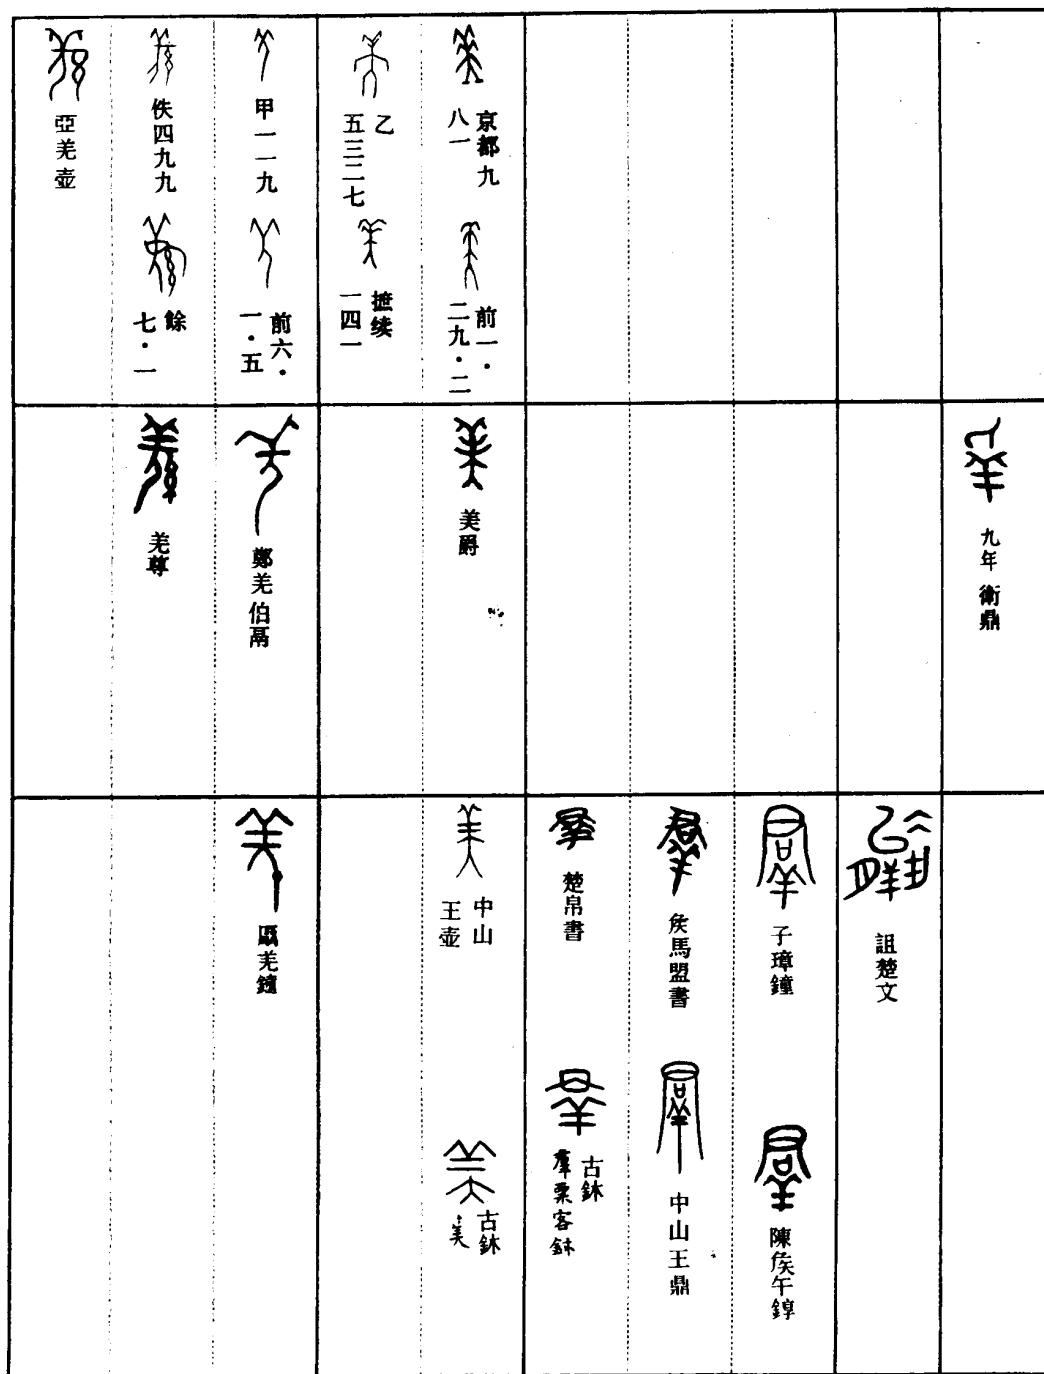 九年衛鼎
詛楚文
子璋鐘
陳矦午錞
矦馬盟書
中山王鼎
楚帛書
古鉢
羣粟客鉢
京都九
八一
前一·
二九·二
美爵
中山
王壺
古鉢
·美
乙
五三二七
摭续
一四一
甲一一九
前六·
一·五
鄭羌伯鬲
羌鐘
佚四九九
餘
七·一
羌尊
亞羌壺